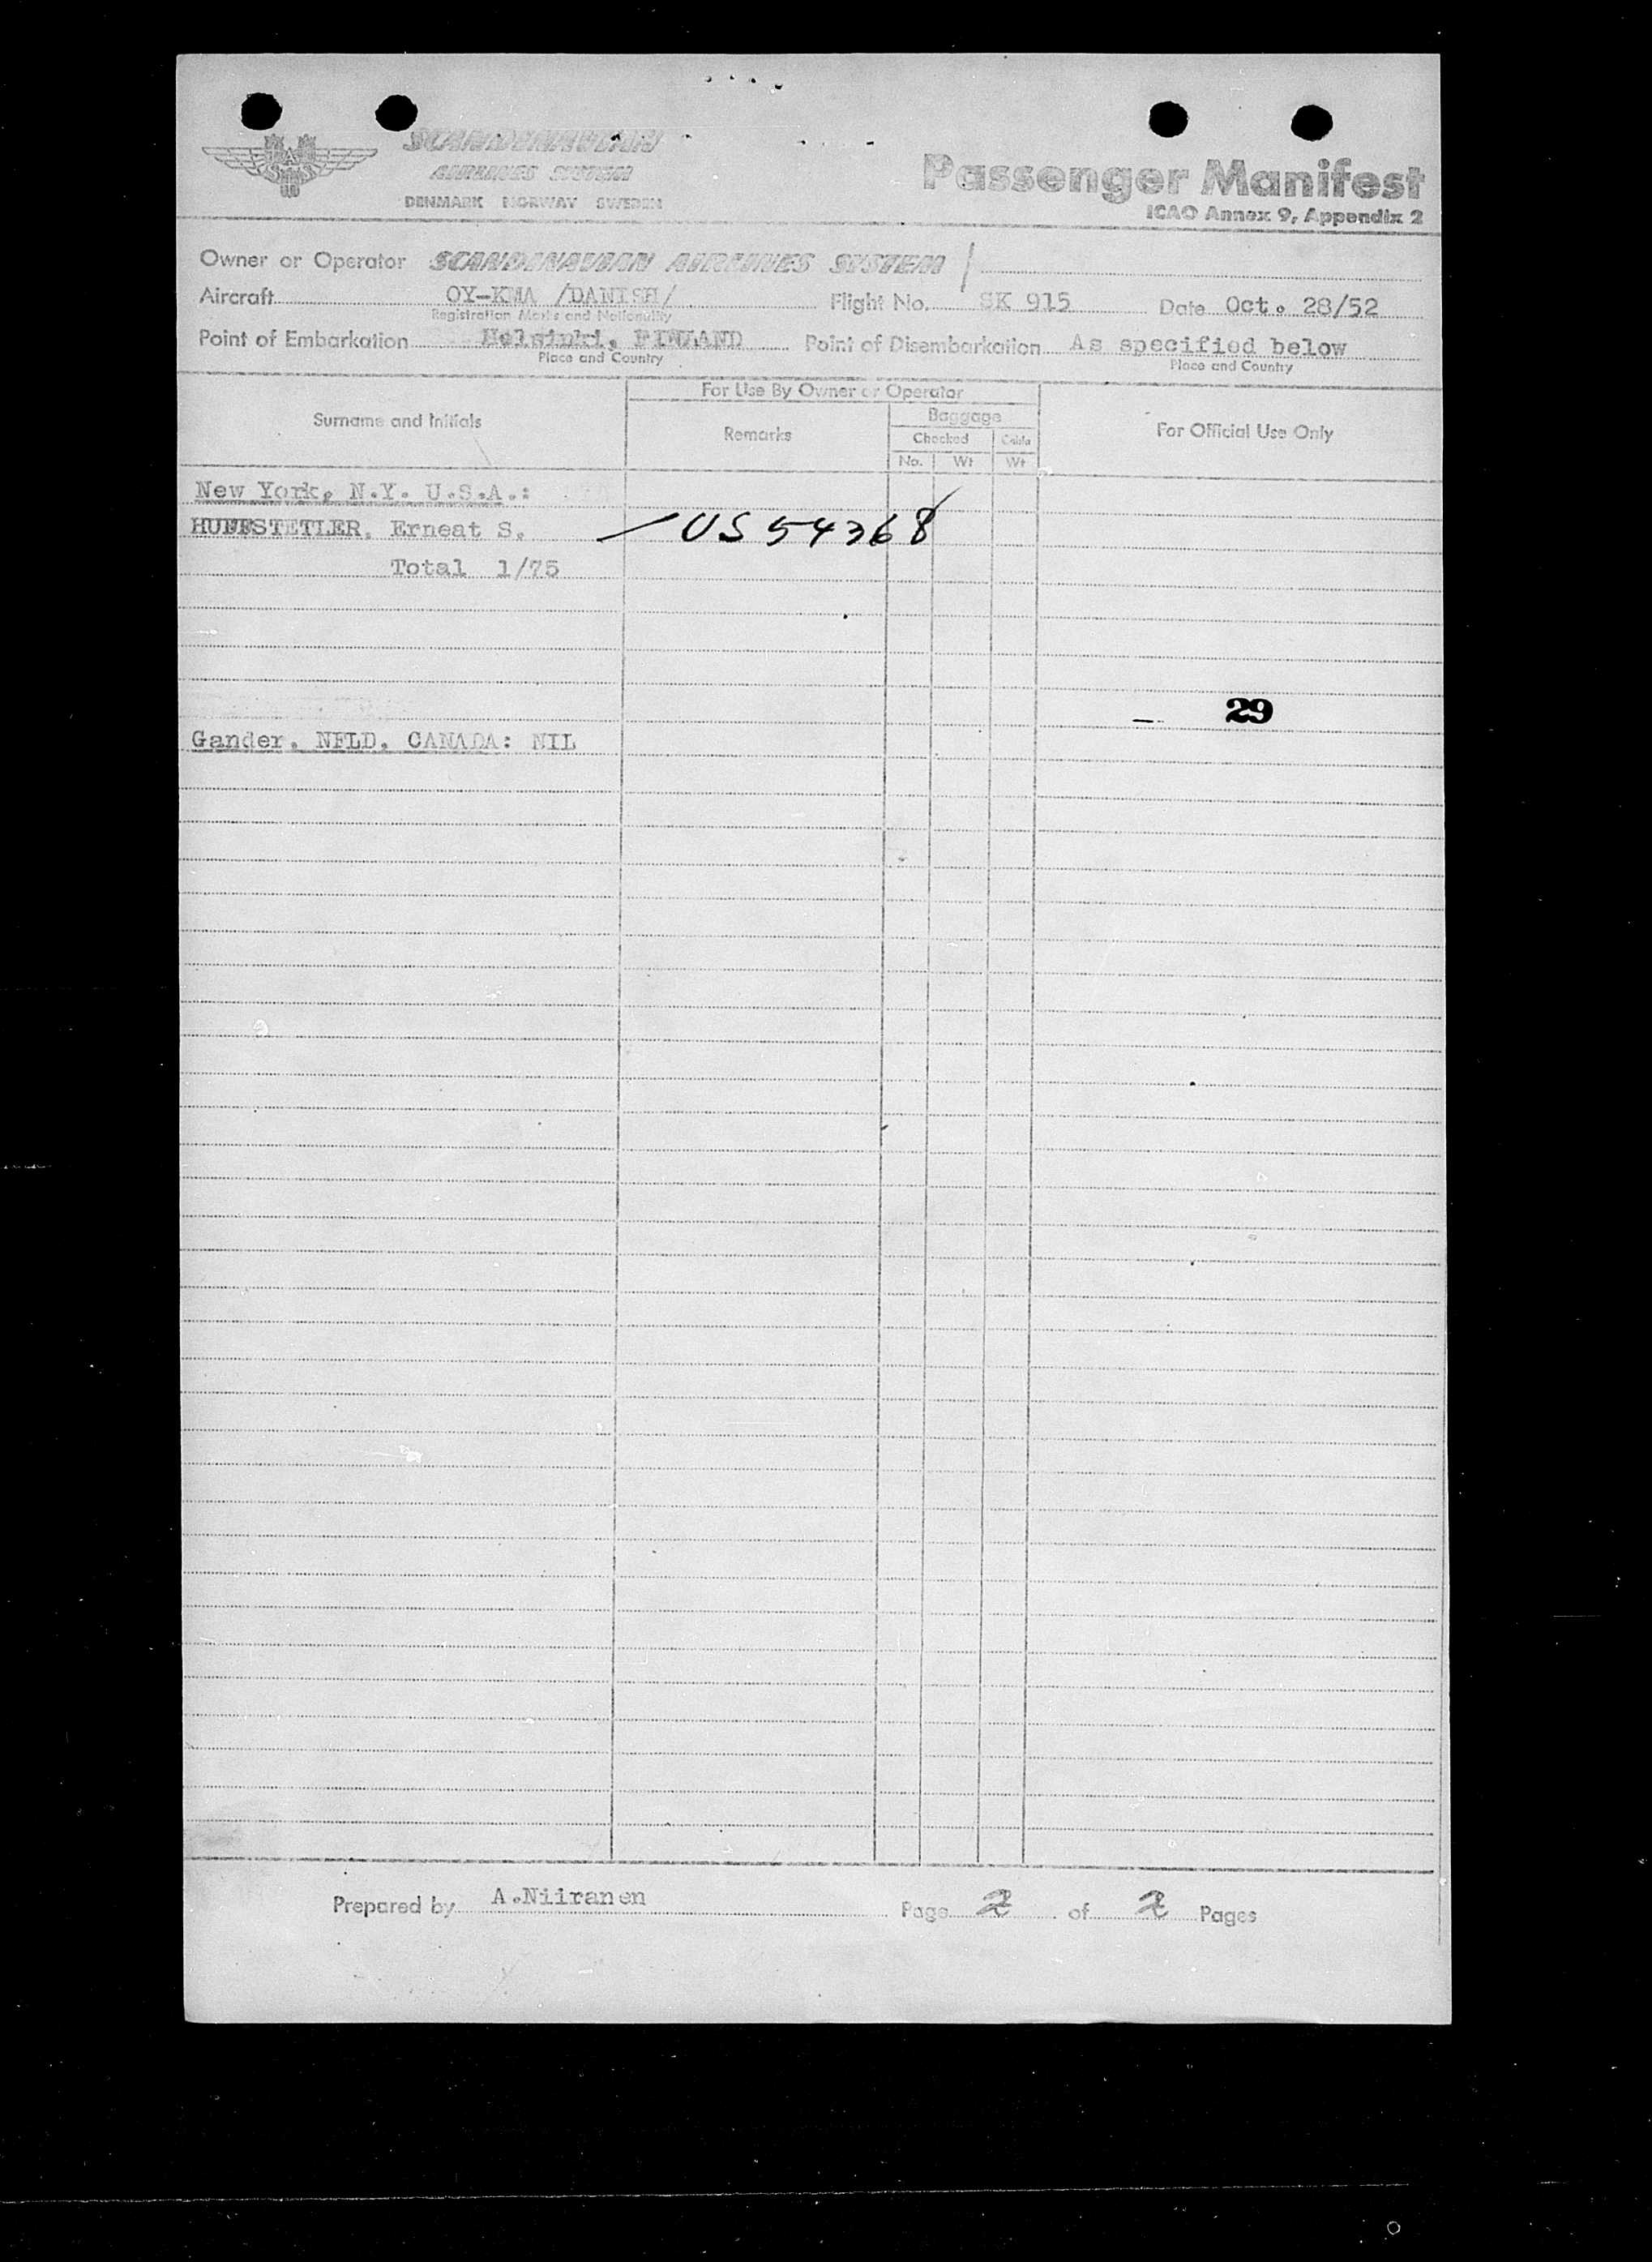 SCANDINAVIAN
AIRLINES SYSTEM
DENMARK NORWAY SWEDEN
SAS
Passenger Manifest
ICAO Annex 9, Appendix 2
Owner or Operator SCANDINAVIAN AIRLINES SYSTEM /
Aircraft OY-KMA /DANISH/ Flight No. SK 915 Date Oct. 28/52
Registration Marks and Nationality
Point of Embarkation Helsinki, FINLAND Point of Disembarkation As specified below
Place and Country Place and Country
For Use By Owner or Operator
Surname and Initials Remarks Baggage For Official Use Only
Checked Cabin
No. Wt Wt
New York, N.Y. U.S.A.:
HUFFSTETLER, Erneat S. US 54368
Total 1/75
29
Gander, NFLD, CANADA: NIL
Prepared by A.Niiranen Page 2 of 2 Pages